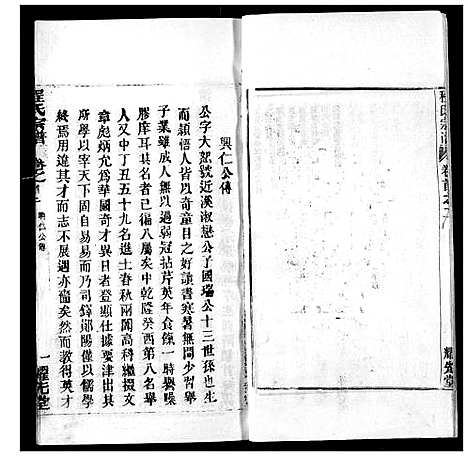 興仁公傳
公字大郯號近溪淑懋公子國瑞公十三世孫也生
而穎悟人皆奇童目之好讀書寒暑無間少習舉
子業雖成人無以過弱冠拈芹英年食餼一時譽噪
膠庠耳其名者已徧八屬矣中乾隆癸酉第八名舉
人又中丁丑五十九名進士春秋兩闈高科繼掇文
章彪炳本爲華國奇才異日者登顯仕據要津出其
所學以宰天下固自易易而乃司鐸鄖陽僅以儒學
終焉用違其才而志不展遇亦嗇矣然而教得英才
程氏宗譜
卷首之二
興仁公傳
一
耀先堂
程氏宗譜
卷首之二
耀先堂